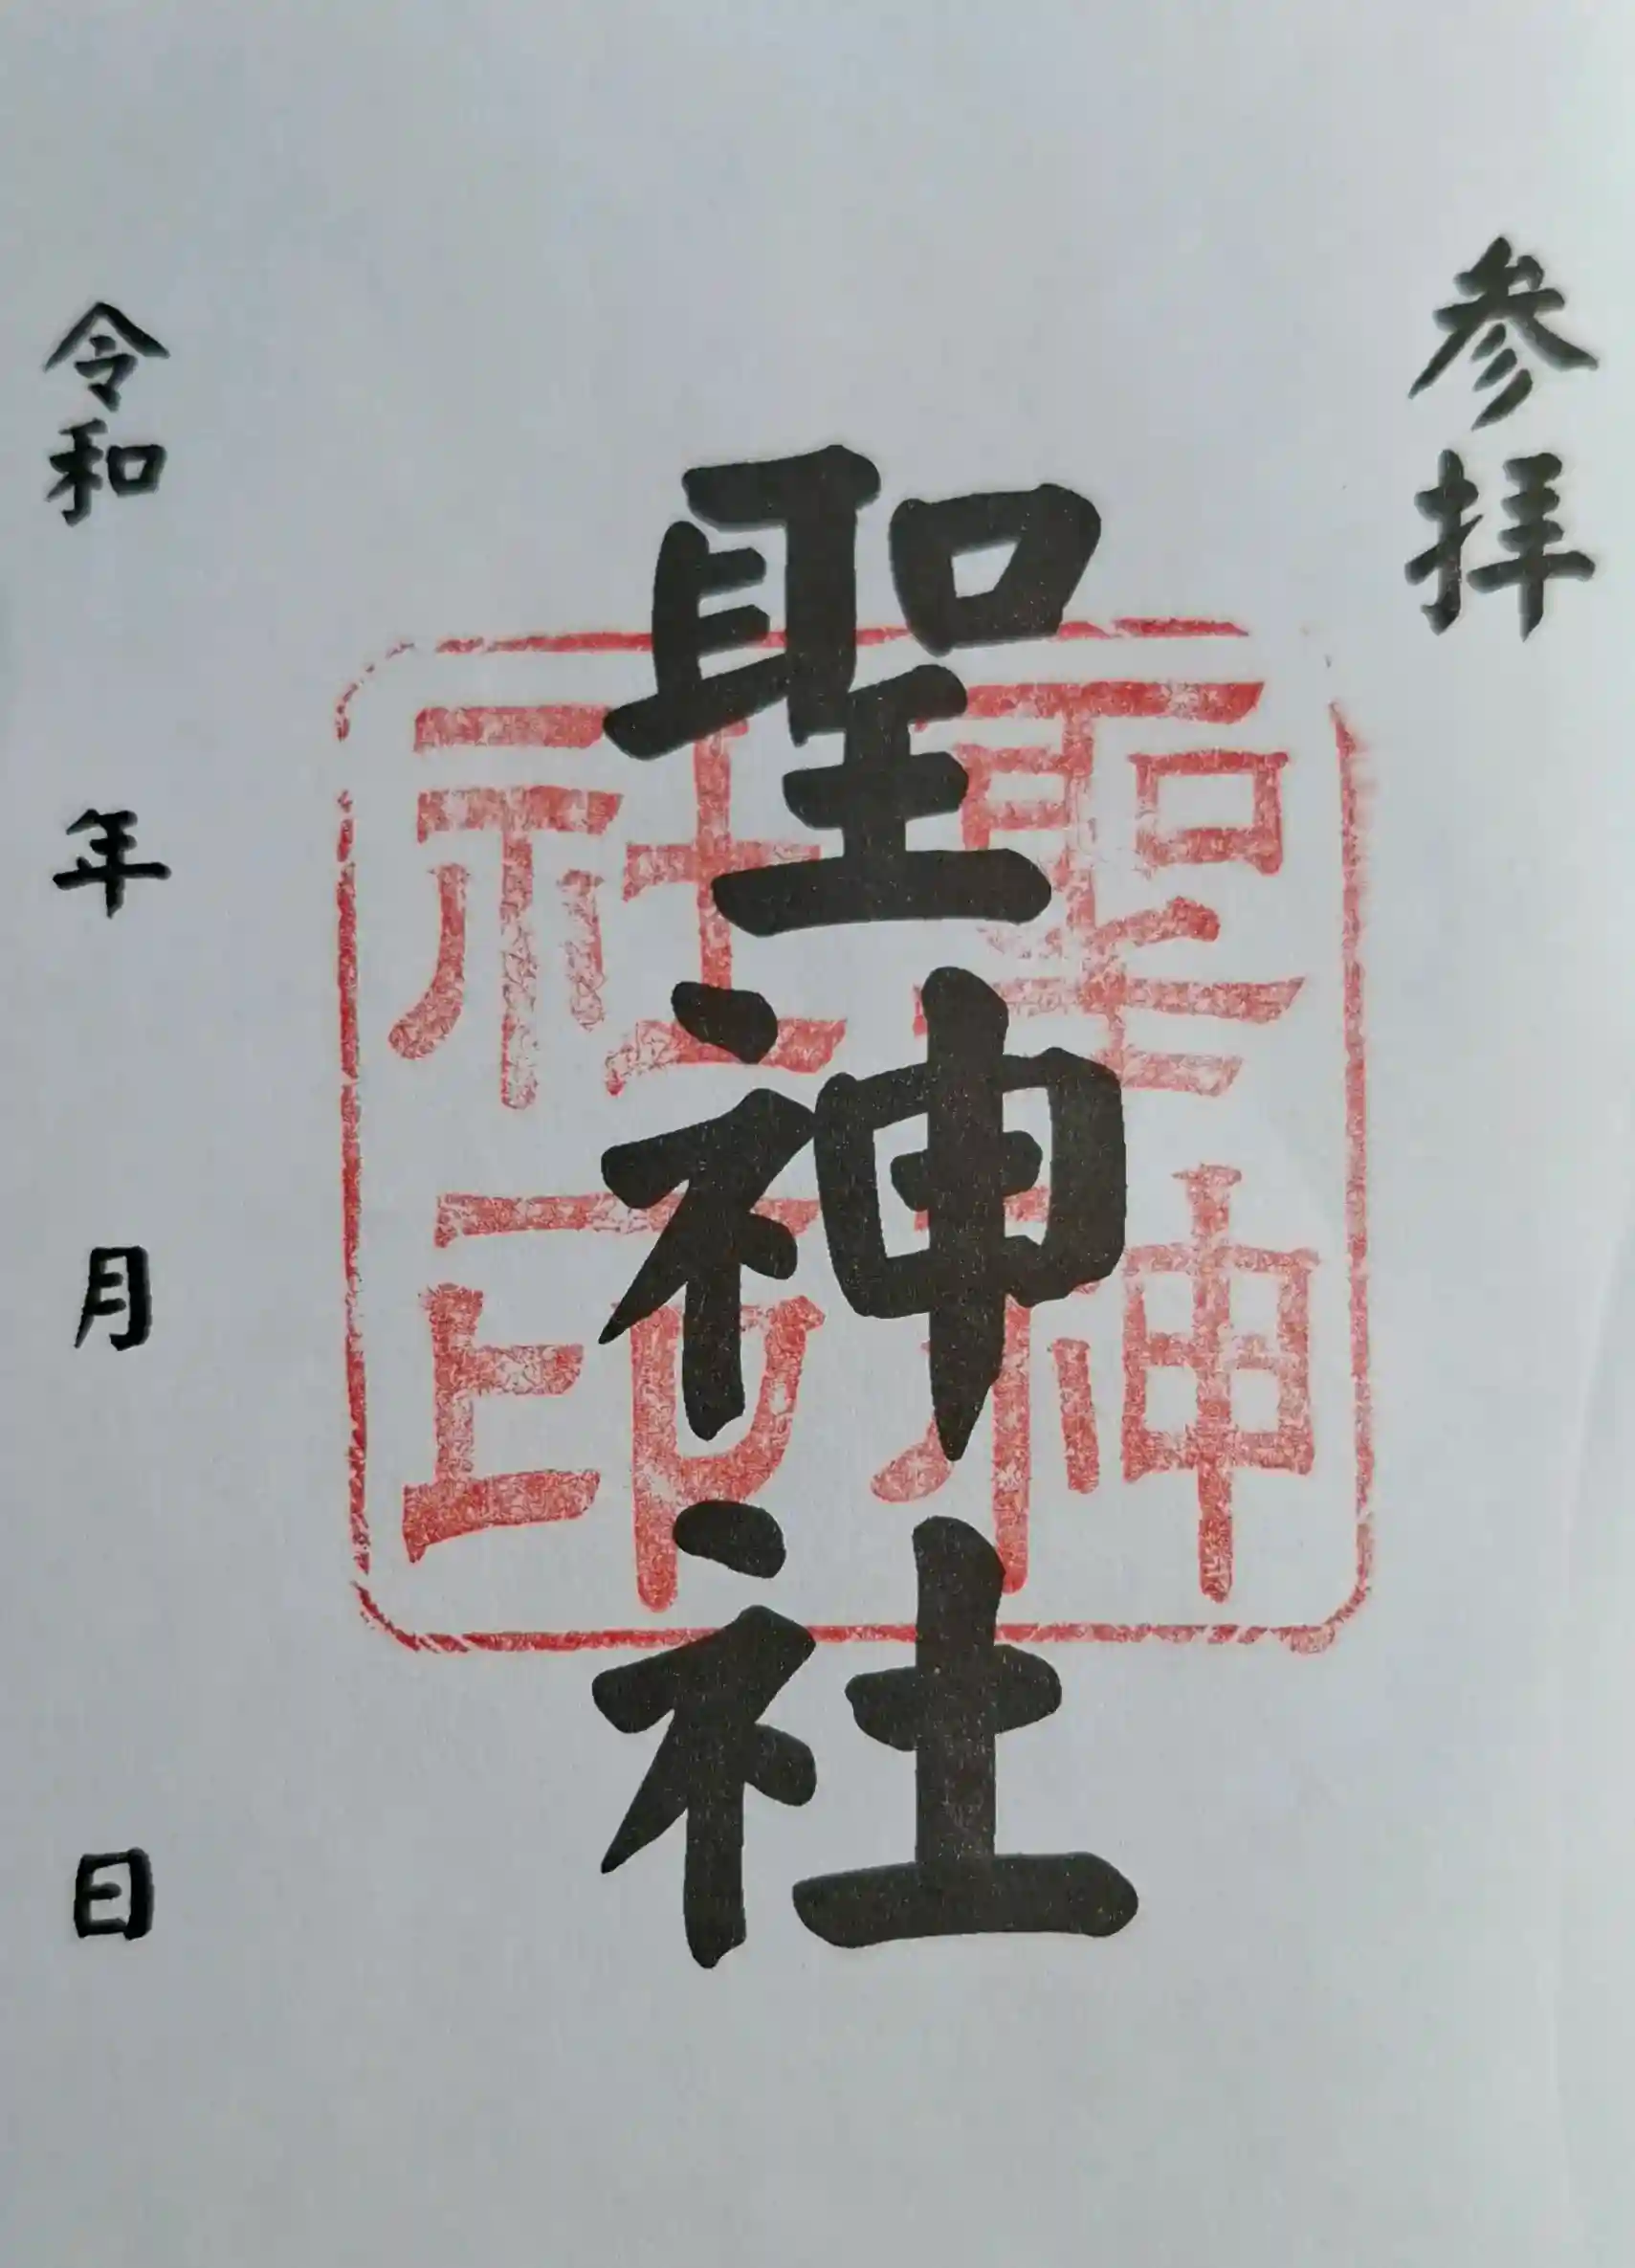 参拝
聖神社
聖神
社印
令和 年 月 日